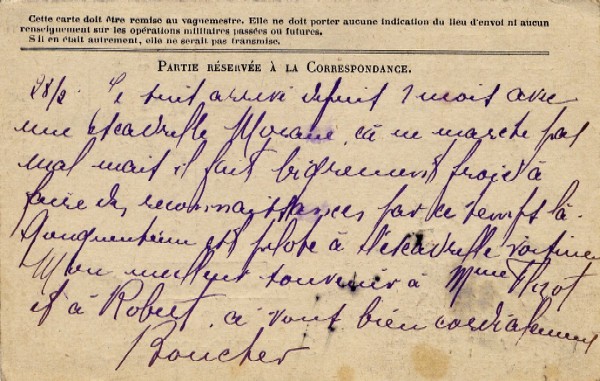 Cette carte doit être remise au vaguemestre. Elle ne doit porter aucune indication du lieu d'envoi ni aucun
renseignement sur les opérations militaires passées ou futures.
S'il en était autrement, elle ne serait pas transmise.
PARTIE RÉSERVÉE À LA CORRESPONDANCE.
28/2 Je suis arrivé depuis 1 mois avec
une escadrille Morane, ça ne marche pas
mal mais il fait bigrement froid à
faire des reconnaissances par ce temps là.
est pilote à l'escadrille voisine
Mon meilleur souvenir à Mme
et à Robert, à vous bien cordialement
Boucher